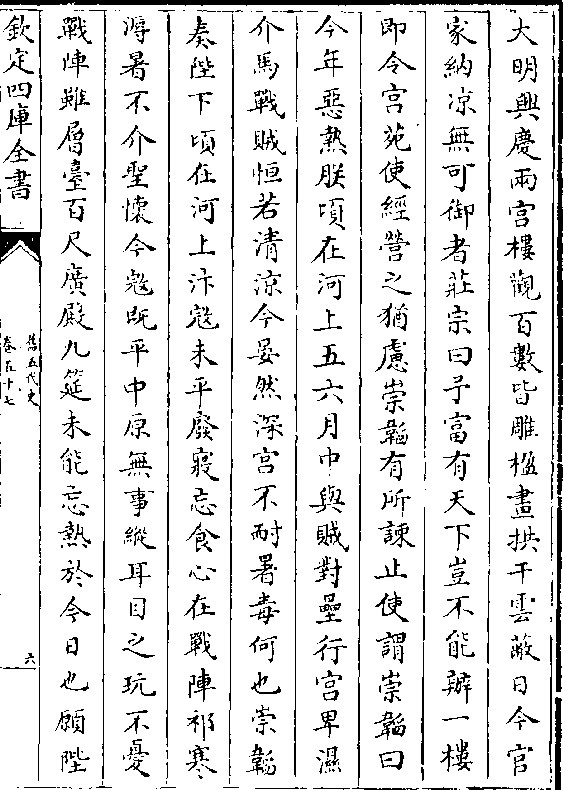 大明興慶兩宮樓觀百數皆雕楹畫拱干雲蔽日今官
家納凉無可御者莊宗曰予富有天下豈不能辦一樓
即令宮苑使經營之猶慮崇韜有所諫止使謂崇韜曰
今年惡熱朕頃在河上五六月中與賊對壘行宮卑濕
介馬戰賊恒若清涼今晏然深宮不耐暑毒何也崇韜
奏陛下頃在河上汴寇未平廢寢忘食心在戰陣祁寒
溽暑不介聖懷今寇既平中原無事縱耳目之玩不憂
戰陣雖層臺百尺廣殿九筵未能忘熱於今日也願陛
欽定四庫全書
舊五代史
卷五十七
六